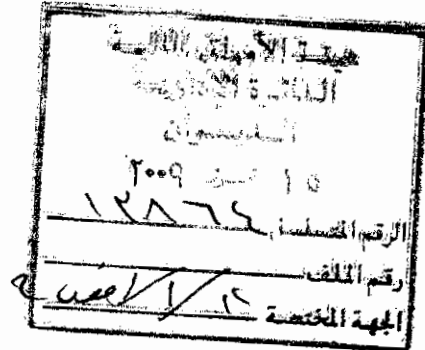 هيئة الأوراق المالية
الدائرة الإدارية
الديوان
١٥ ٢٠٠٩
الرقم المتسلسل ١٣٨٦٤
رقم الملف
الجهة المختصة